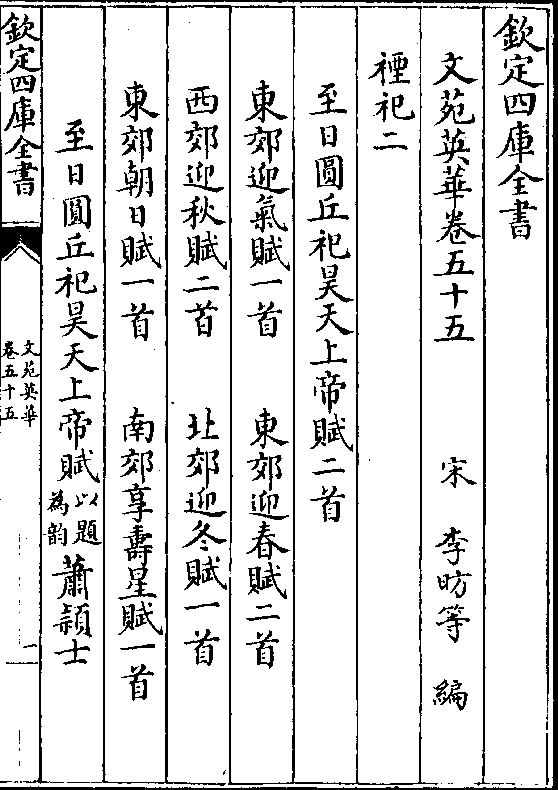 欽定四庫全書
文苑英華卷五十五
宋 李昉等 編
禋祀二
至日圓丘祀昊天上帝賦二首
東郊迎氣賦一首 東郊迎春賦二首
西郊迎秋賦二首 北郊迎冬賦一首
東郊朝日賦一首 南郊享壽星賦一首
至日圓丘祀昊天上帝賦以題為韵 蕭頴士
欽定四庫全書
文苑英華
卷五十五
一